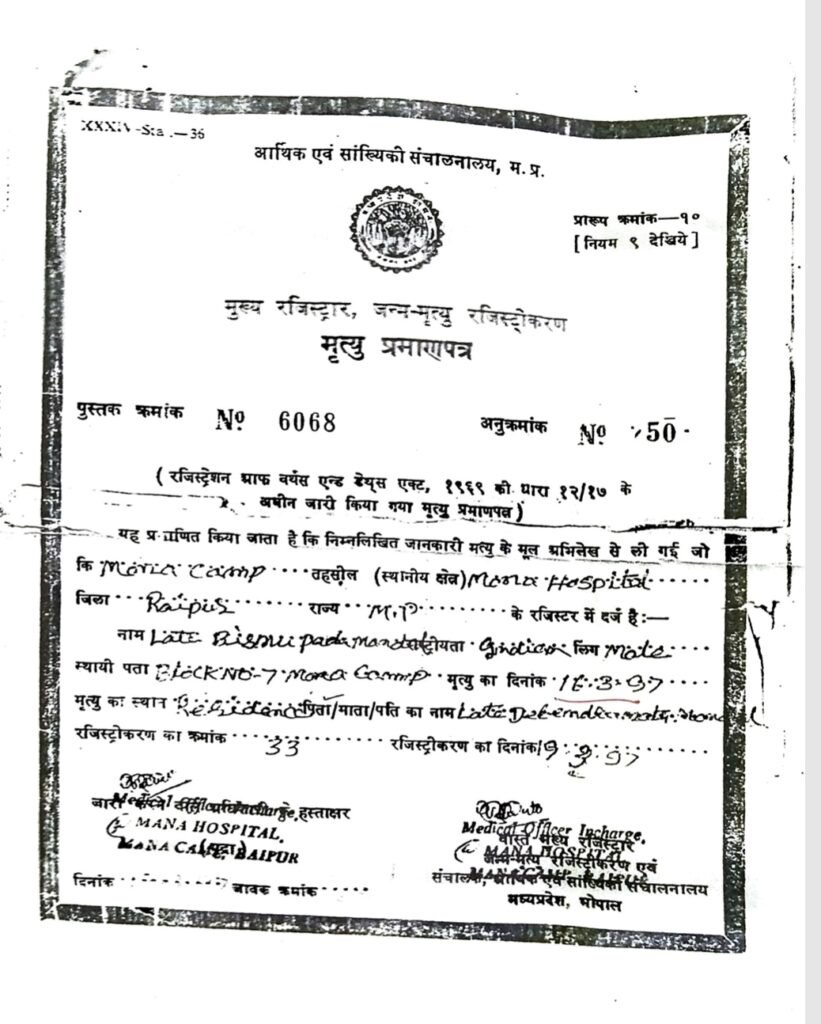 XXXIV-Sta.—36
आर्थिक एवं सांख्यिकी संचालनालय, म. प्र.
प्रारूप क्रमांक—१०
[नियम ९ देखिये]
मुख्य रजिस्ट्रार, जन्म-मृत्यु रजिस्ट्रीकरण
मृत्यु प्रमाणपत्र
पुस्तक क्रमांक No 6068 अनुक्रमांक No 50
(रजिस्ट्रेशन आफ बर्थस एन्ड डेथ्स एक्ट, १९६९ की धारा १२/१७ के
अधीन जारी किया गया मृत्यु प्रमाणपत्र)
यह प्रमाणित किया जाता है कि निम्नलिखित जानकारी मृत्यु के मूल अभिलेख से ली गई जो
कि Mana Camp तहसील (स्थानीय क्षेत्र) Mana Hospital
जिला Raipur राज्य M.P के रजिस्टर में दर्ज है:—
नाम Late Bisnupada Mandal राष्ट्रीयता Indian लिंग Male
स्थायी पता Block No-7 Mana Camp मृत्यु का दिनांक .3.97
मृत्यु का स्थान Residence पिता/माता/पति का नाम Late
रजिस्ट्रीकरण का क्रमांक 33 रजिस्ट्रीकरण का दिनांक 19.3.97
जारी करने वाले अधिकारी के हस्ताक्षर
Medical Officer Incharge,
MANA HOSPITAL,
MANA CAMP, RAIPUR
(मुद्रा)
दिनांक जावक क्रमांक
Medical Officer Incharge,
वास्ते मुख्य रजिस्ट्रार
MANA HOSPITAL
जन्म-मृत्यु रजिस्ट्रीकरण एवं
MANA CAMP, RAIPUR
संचालक, आर्थिक एवं सांख्यिकी संचालनालय
मध्यप्रदेश, भोपाल